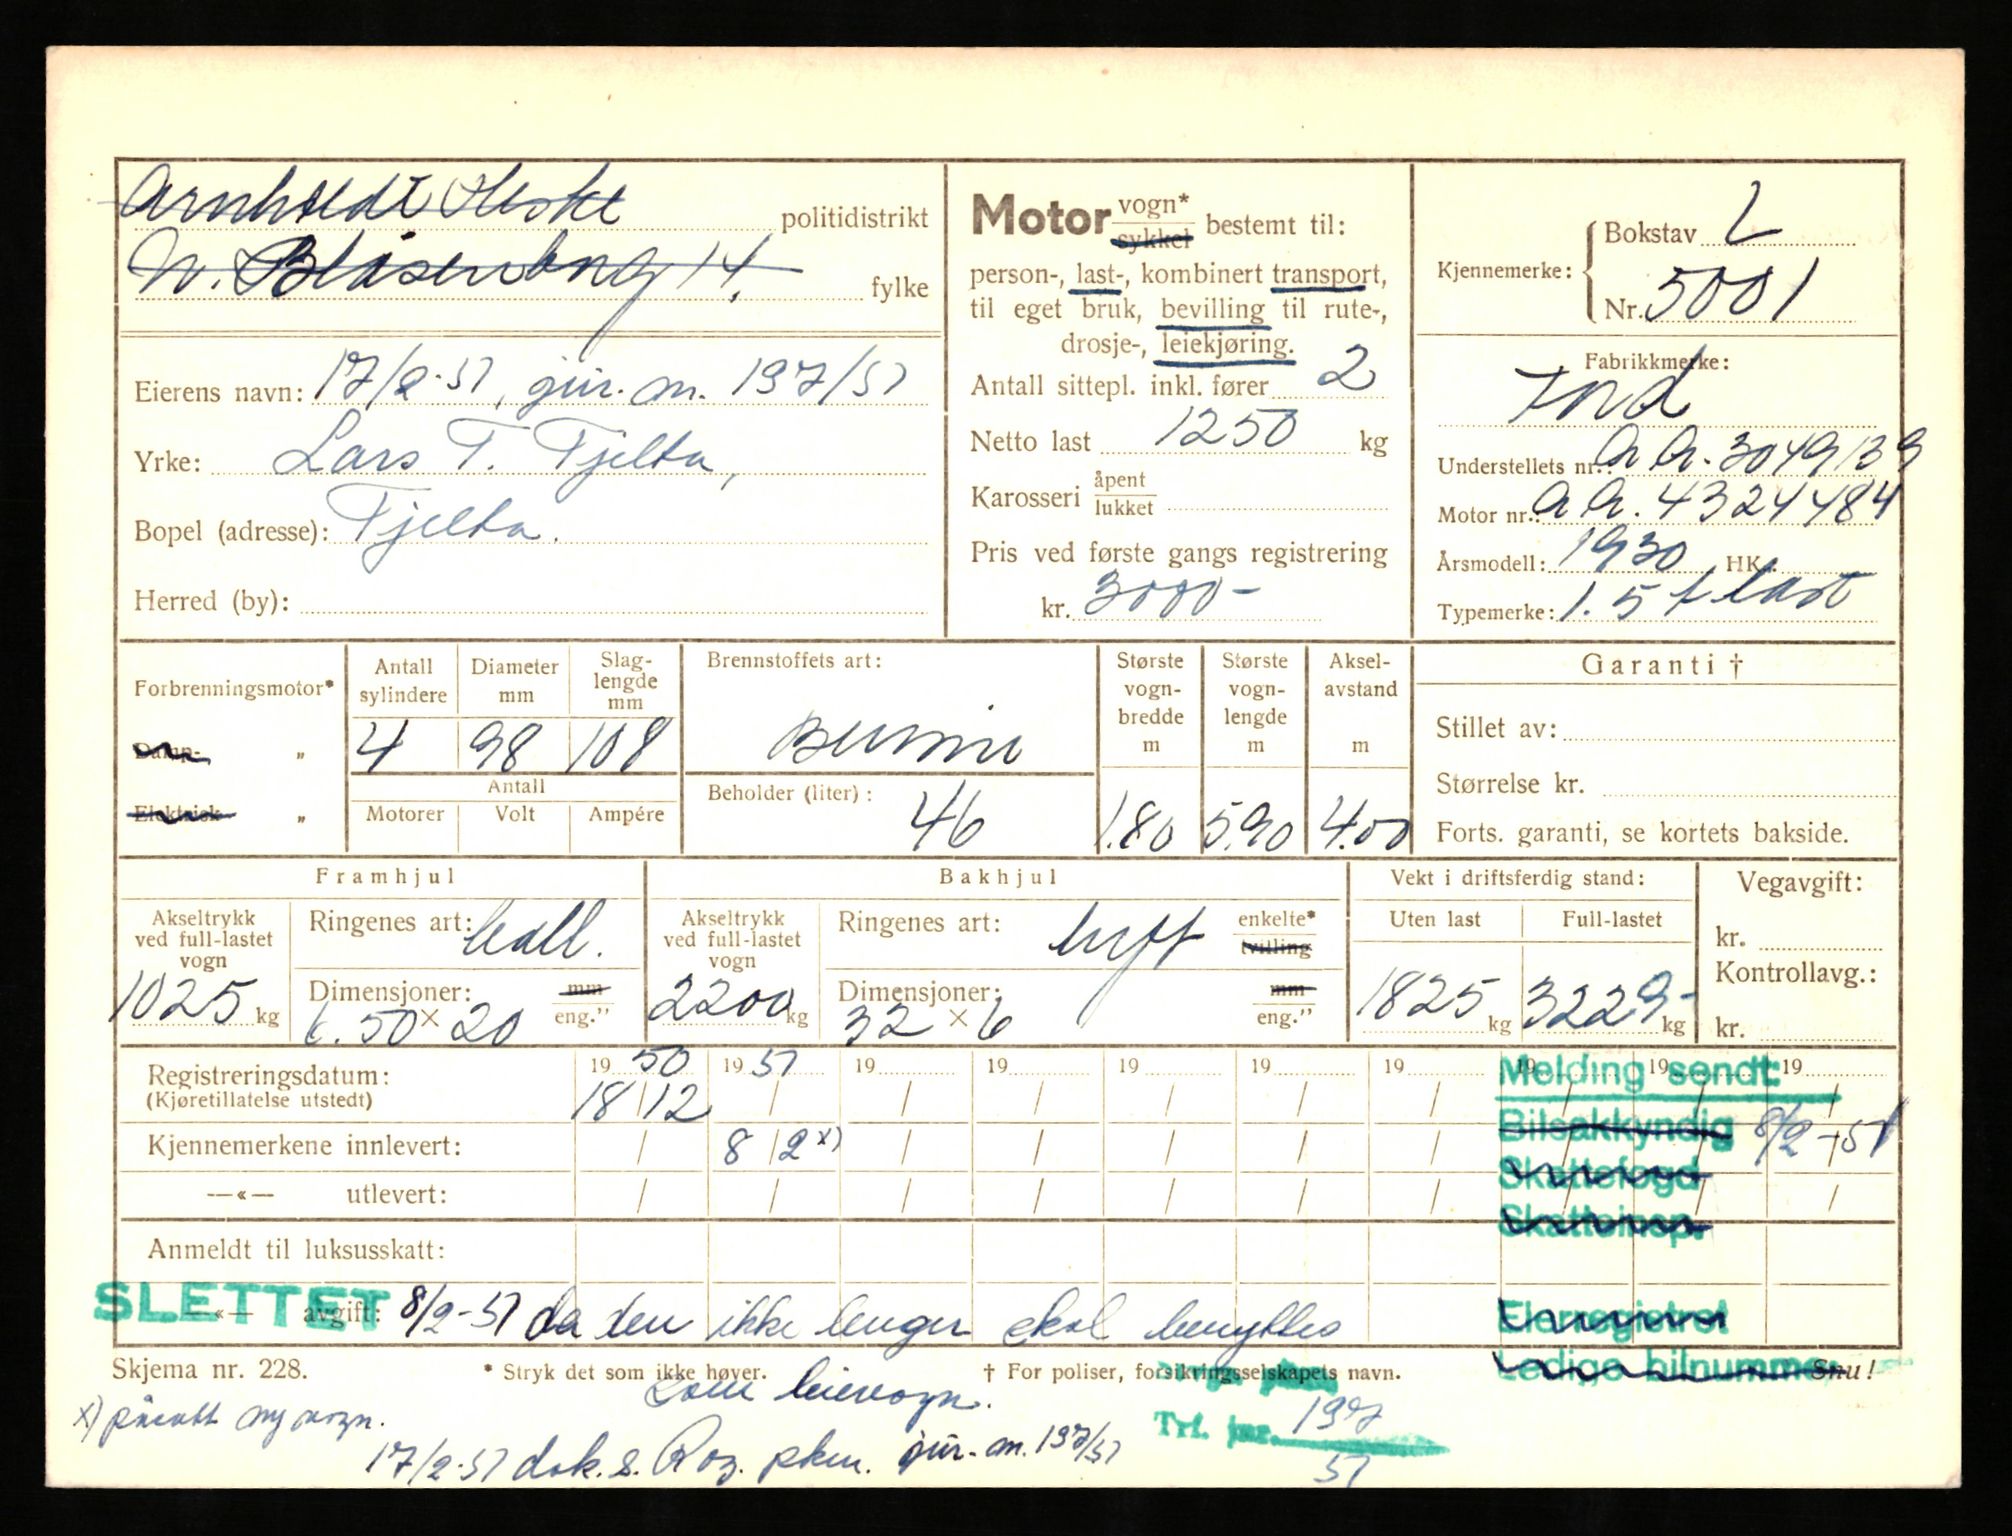 Arnholdt politidistrikt
N. Blåsenborg 14. fylke
Eierens navn: 17/2-51, jur. m. 197/51
Yrke: Lars T. Tjelta,
Bopel (adresse): Tjelta.
Herred (by):
Motor vogn* sykkel bestemt til:
person-, last-, kombinert transport,
til eget bruk, bevilling til rute-,
drosje-, leiekjøring.
Antall sittepl. inkl. fører 2
Netto last 1250 kg
Karosseri åpent lukket
Pris ved første gangs registrering
kr. 3000-
Kjennemerke: Bokstav L
Nr. 5001
Fabrikkmerke:
Ford
Understellets nr.: AA. 3049139
Motor nr.: AA. 4324484
Årsmodell: 1930 HK.:
Typemerke: 1.5 t last
Forbrenningsmotor*
Damp- "
Elektrisk "
Antall sylindere 4
Diameter mm 98
Slag-lengde mm 108
Antall
Motorer Volt Ampére
Brennstoffets art:
Bensin
Beholder (liter): 46
Største vogn-bredde m 1.80
Største vogn-lengde m 5.90
Aksel-avstand m 4.00
Garanti †
Stillet av:
Størrelse kr.
Forts. garanti, se kortets bakside.
Framhjul
Akseltrykk ved full-lastet vogn 1025 kg
Ringenes art: ball.
Dimensjoner: 6.50 × 20 mm eng."
Bakhjul
Akseltrykk ved full-lastet vogn 2200 kg
Ringenes art: luft enkelte* tvilling
Dimensjoner: 32 × 6 mm eng."
Vekt i driftsferdig stand:
Uten last 1825 kg
Full-lastet 3229- kg
Vegavgift:
kr.
Kontrollavg.:
kr.
Registreringsdatum: 19 50 19 51 19 19 19 19 19 19 19 19
(Kjøretillatelse utstedt) 18/12
Kjennemerkene innlevert: 8/2 x)
—«— utlevert:
Anmeldt til luksusskatt:
—«— avgift:
SLETTET 8/2-51 da den ikke lenger skal benyttes
som leievogn.
Melding sendt:
Bilsakkyndig 8/2-51
Skattefogd
Skatteinsp.
Eierregistret
Ledige bilnummer
Skjema nr. 228.
* Stryk det som ikke høver.
† For poliser, forsikringsselskapets navn.
Snu!
x) påsatt ny vogn.
17/2-51 dok. s. Rog. pkm. jur. m. 197/51
Trf. jnr. 197
51